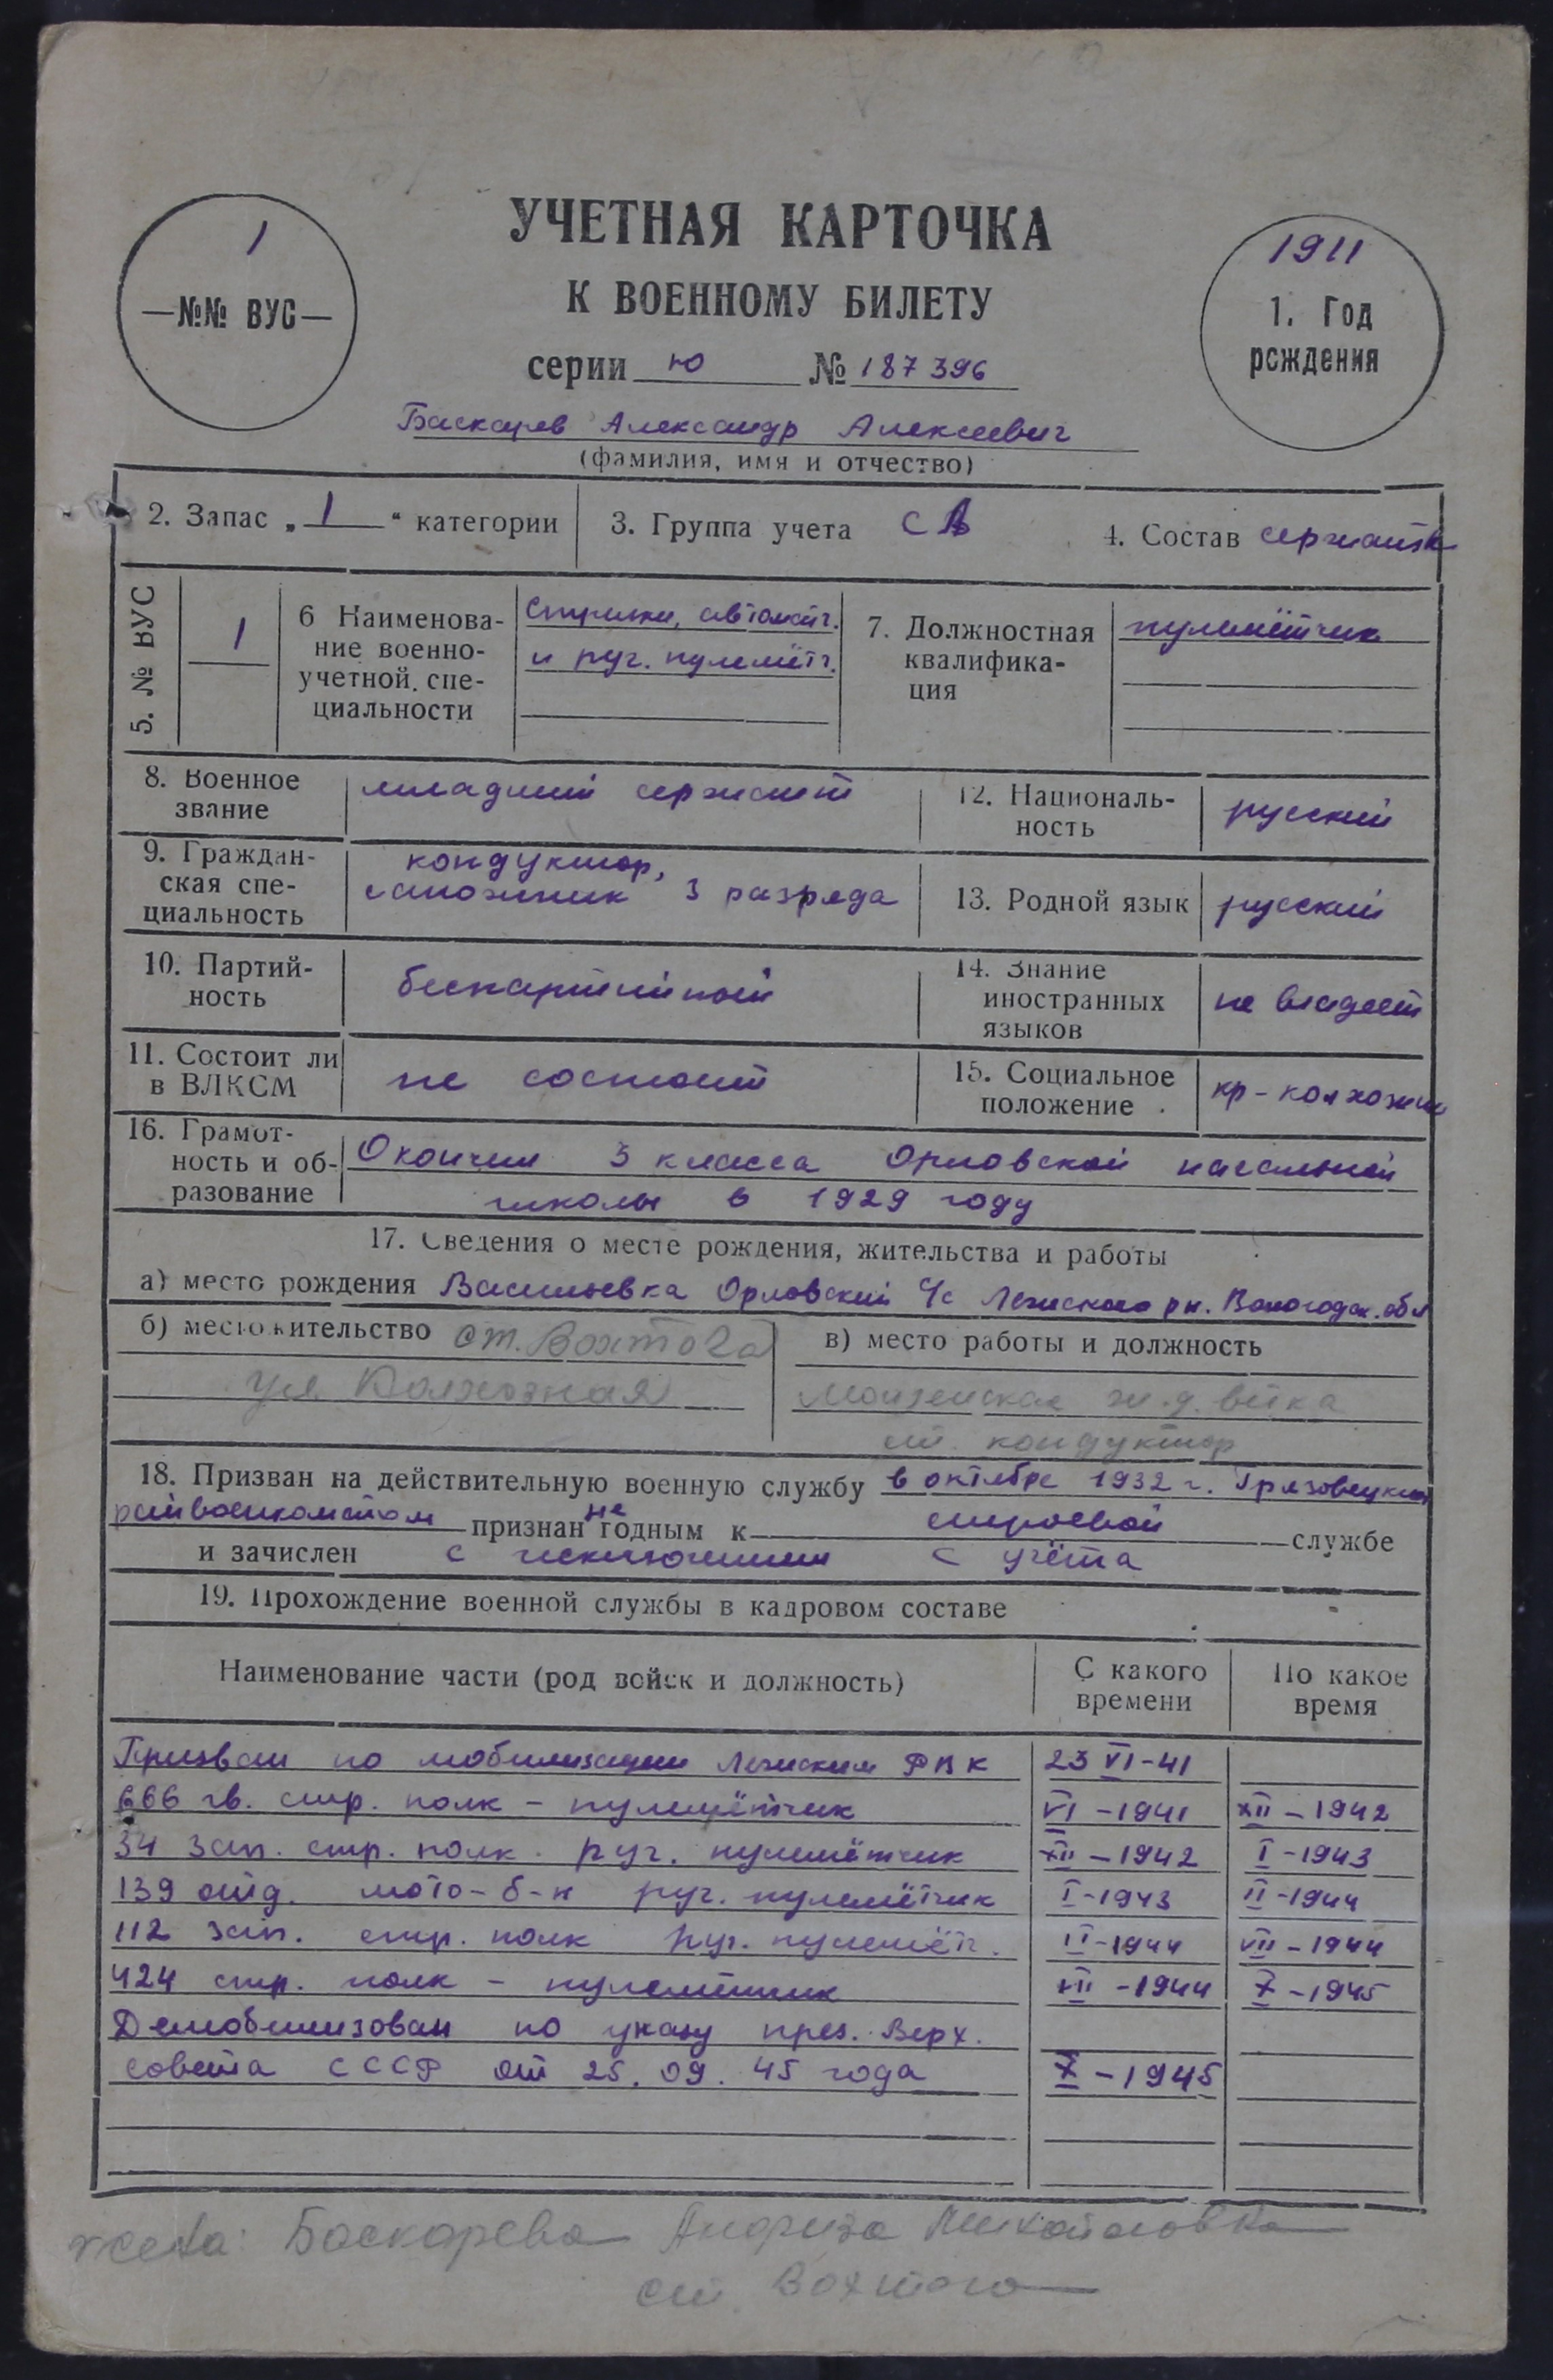 1
—№№ ВУС—
УЧЕТНАЯ КАРТОЧКА
К ВОЕННОМУ БИЛЕТУ
серии Ю № 187396
1911
1. Год
рождения
Баскарев Александр Алексеевич
(фамилия, имя и отчество)
2. Запас „1“ категории
3. Группа учета СА
4. Состав сержантск
5. № ВУС
1
6 Наименова-
ние военно-
учетной спе-
циальности
Стрелки, автоматч.
и руч. пулемётч.
7. Должностная
квалифика-
ция
пулемётчик
8. Военное
звание
младший сержант
12. Националь-
ность
русский
9. Граждан-
ская спе-
циальность
кондуктор,
сапожник 3 разряда
13. Родной язык
русский
10. Партий-
ность
беспартийный
14. Знание
иностранных
языков
не владеет
11. Состоит ли
в ВЛКСМ
не состоит
15. Социальное
положение
кр-колхозник
16. Грамот-
ность и об-
разование
Окончил 3 класса Орловской начальной
школы в 1929 году
17. Сведения о месте рождения, жительства и работы
а) место рождения Васильевка Орловский с/с Лежского рн. Вологодск. обл
б) местожительство ст. Вохтога
ул Колхозная
в) место работы и должность
Монзенская ж.д. ветка
ст. кондуктор
18. Призван на действительную военную службу в октябре 1932 г. Грязовецким
райвоенкоматом признан не годным к строевой службе
и зачислен с исключением с учёта
19. Прохождение военной службы в кадровом составе
Наименование части (род войск и должность)
С какого
времени
По какое
время
Призван по мобилизации Лежским РВК 23 VI-41
666 гв. стр. полк - пулемётчик VI-1941 XII-1942
34 зап. стр. полк. руч. пулемётчик XII-1942 I-1943
139 отд. мото-б-н руч. пулемётчик I-1943 II-1944
112 зап. стр. полк руч. пулемётч. II-1944 VII-1944
424 стр. полк - пулемётчик VII-1944 X-1945
Демобилизован по указу през. Верх.
совета СССР от 25.09.45 года X-1945
жена: Баскарева Михайловна
ст. Вохтога